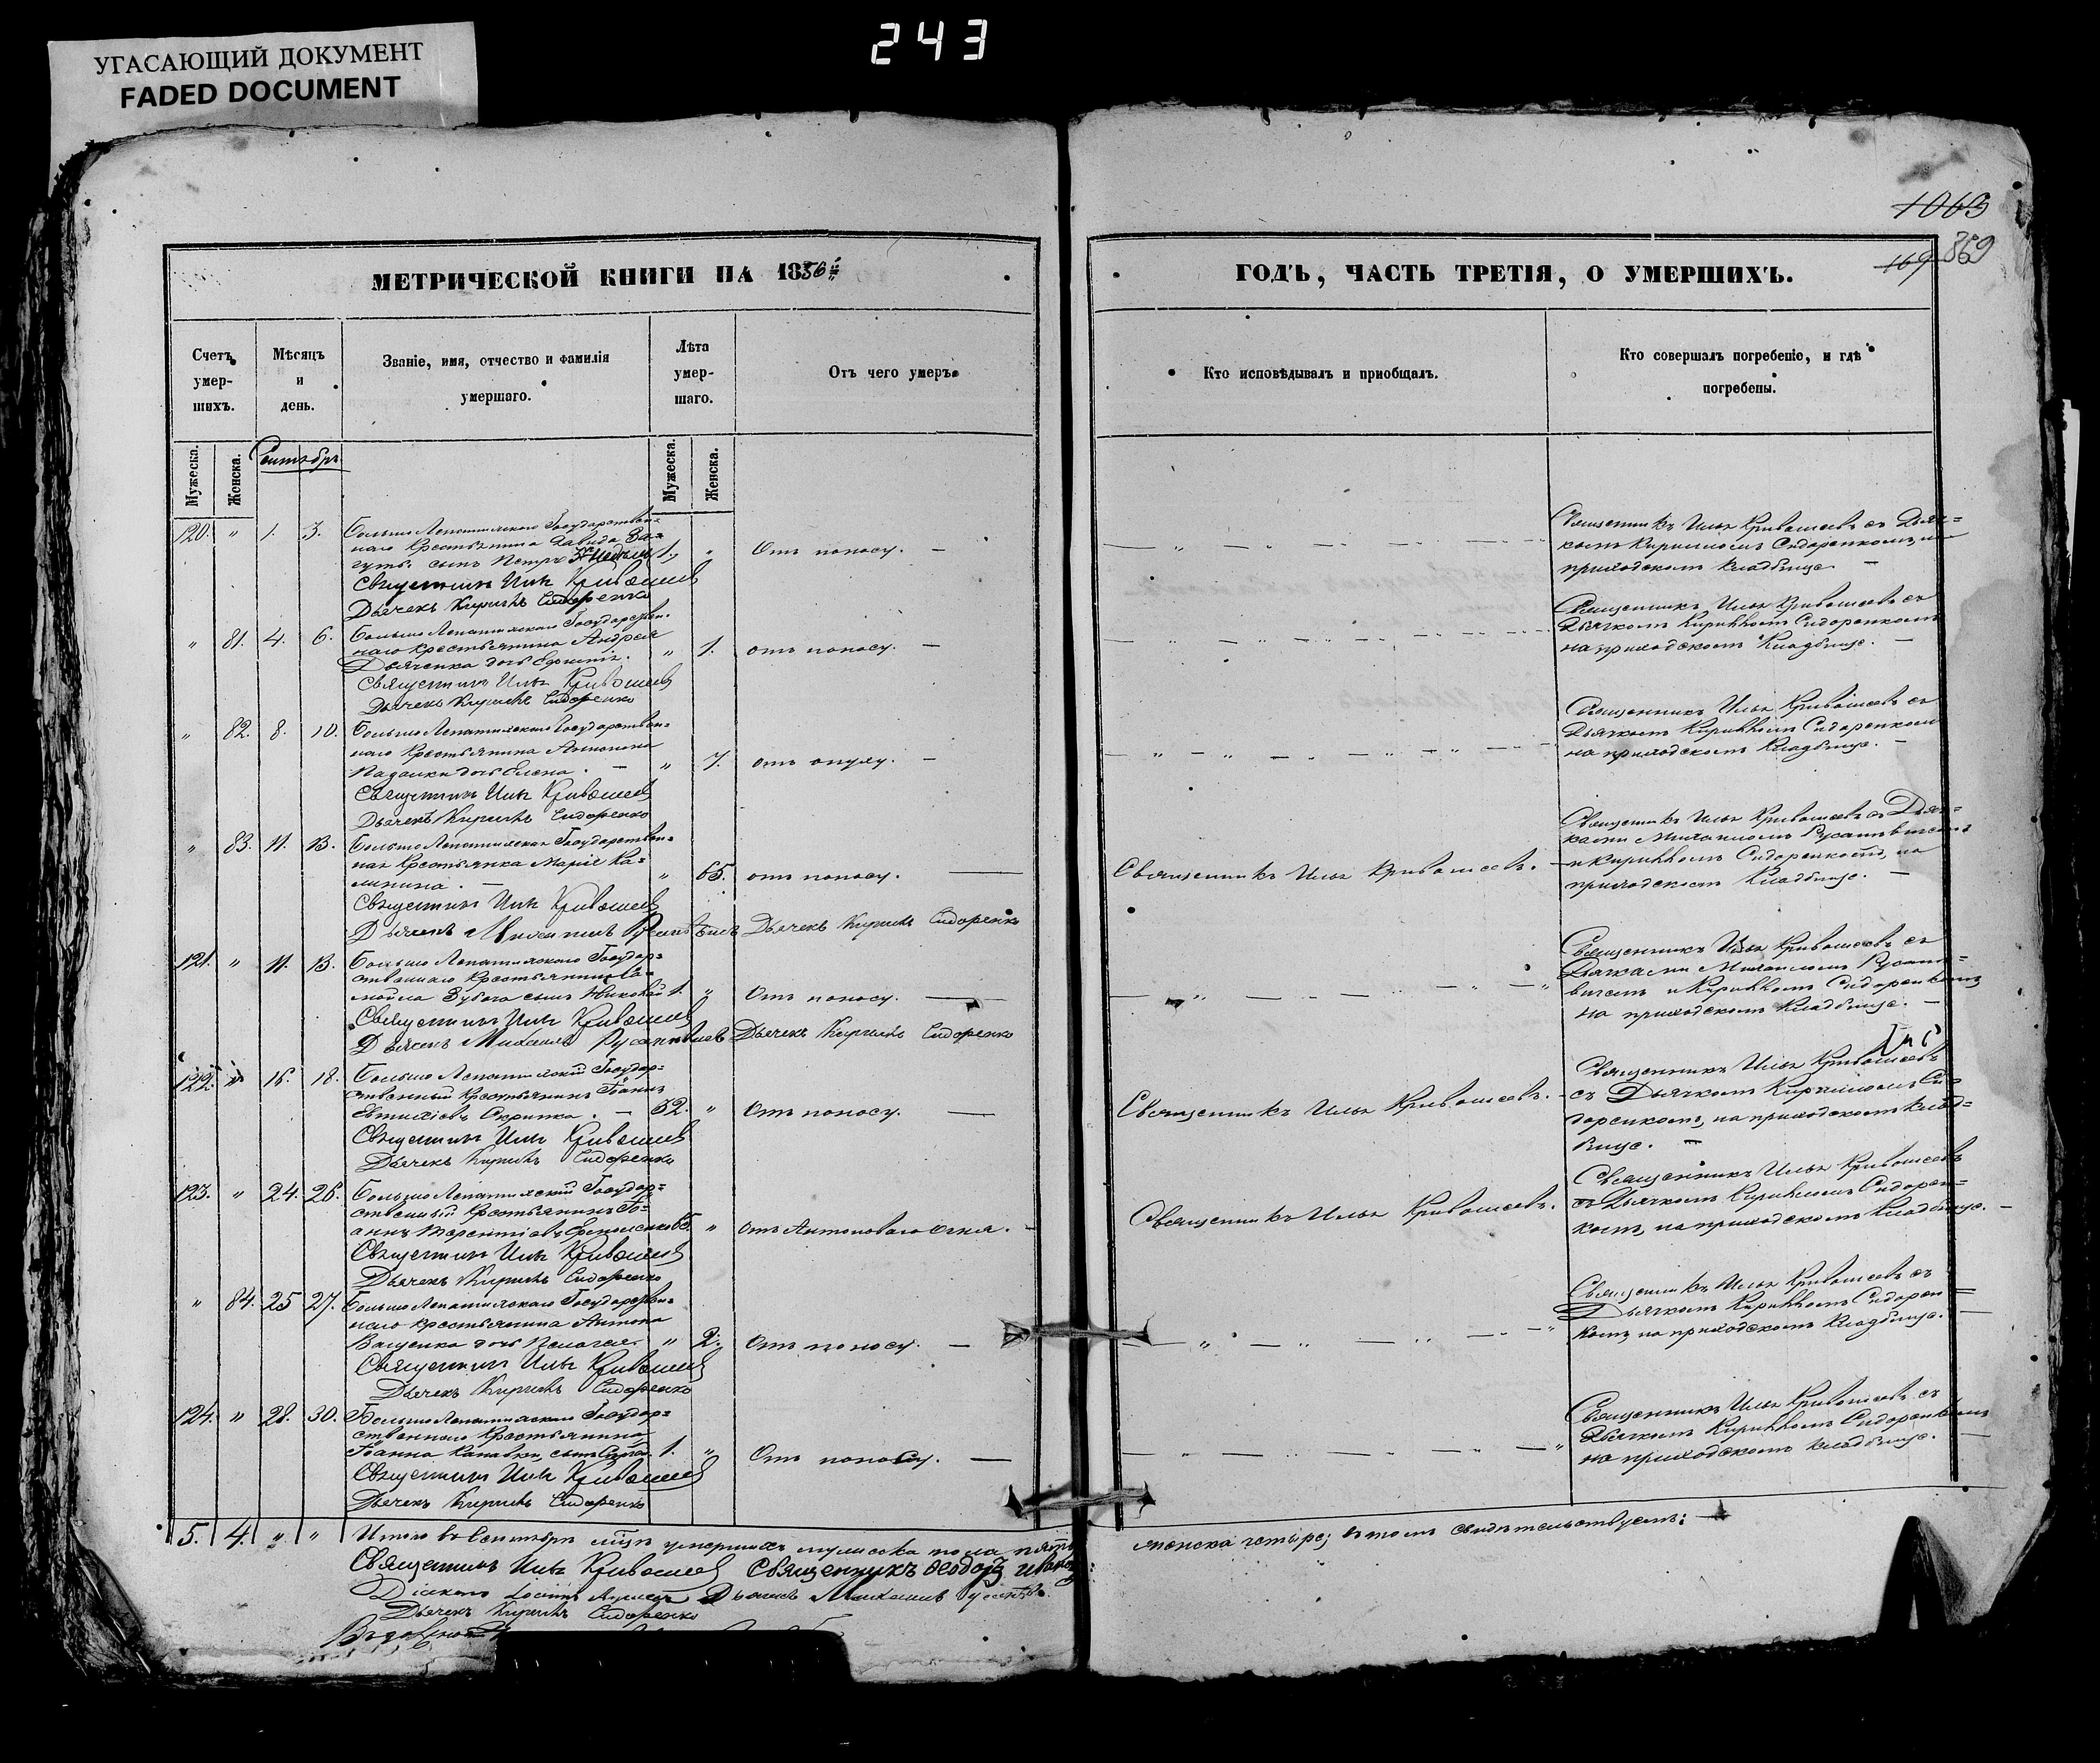 243
УГАСАЮЩИЙ ДОКУМЕНТ
FADED DOCUMENT
1063
169 869
МЕТРИЧЕСКОЙ КНИГИ НА 1856й
ГОДЪ, ЧАСТЬ ТРЕТІЯ, О УМЕРШИХЪ.
Счетъ умер-
шихъ.
Мѣсяцъ
и
день.
Званіе, имя, отчество и фамилія
умершаго.
Лѣта
умер-
шаго.
Отъ чего умеръ.
Кто исповѣдывалъ и пріобщалъ.
Кто совершалъ погребеніе, и гдѣ
погребены.
Мужеска.
Женска.
Сентябрь
Мужеска.
Женска.
120. " 1. 3. Больше Лепатихскаго Государствен=
наго Крестьянина Давида
сынъ Петръ 1. " Отъ поносу. —
Священникъ Илія Кривошеев
Дьячекъ Кирилъ Сидоренко
Священникъ Илья Кривошеевъ съ Дьяч=
комъ Кирилломъ Сидоренкомъ, на
приходскомъ Кладбище. —
" 81. 4. 6. Больше Лепатихскаго Государствен=
наго Крестьянина Андрея
Дьяченка дочь " 1. отъ поносу. —
Священникъ Илія Кривошеев
Дьячекъ Кирилъ Сидоренко
Священникъ Илья Кривошеевъ съ
Дьячкомъ Кирилломъ Сидоренкомъ
на приходскомъ Кладбище. —
" 82. 8. 10. Больше Лепатихскаго Государствен=
наго Крестьянина
дочь Елена. — " 7. отъ опуху. —
Священникъ Илія Кривошеев
Дьячекъ Кирилъ Сидоренко
Священникъ Илья Кривошеевъ съ
Дьячкомъ Кирилломъ Сидоренкомъ
на приходскомъ Кладбище. —
" 83. 11. 13. Больше Лепатихская Государствен=
ная Крестьянка Марія Ка=
линина. — " 65. отъ поносу. —
Священникъ Илія Кривошеев
Дьячекъ Михаилъ Дьячекъ Кирилъ Сидоренко
Священникъ Илья Кривошеевъ.
Священникъ Илья Кривошеевъ съ Дьяч=
ками Михаиломъ
и Кирилломъ Сидоренкомъ, на
приходскомъ Кладбище. —
121. " 11. 13. Больше Лепатихскаго Государ=
ственнаго Крестьянина Са=
мойла Зубаго сынъ Николай 1. " Отъ поносу. —
Священникъ Илія Кривошеев
Дьячекъ Михаилъ Дьячекъ Кирилъ Сидоренко
Священникъ Илья Кривошеевъ съ
Дьячками Михаиломъ
и Кирилломъ Сидоренкомъ
на приходскомъ Кладбище. —
122. " 16. 18. Больше Лепатихскій Государ=
ственный Крестьянинъ Іоаннъ
Евтихіевъ Скрипка. — 32. " Отъ поносу. —
Священникъ Илія Кривошеев
Дьячекъ Кирилъ Сидоренко
Священникъ Илья Кривошеевъ.
Священникъ Илья Кривошеевъ
съ Дьячкомъ Кирилломъ Си=
доренкомъ, на приходскомъ Клад=
бище. —
123. " 24. 26. Больше Лепатихскій Государ=
ственный Крестьянинъ Іо=
аннъ Терентіевъ Ермоленко 65. " отъ Антонового огня. —
Священникъ Илія Кривошеев
Дьячекъ Кирилъ Сидоренко
Священникъ Илья Кривошеевъ.
Священникъ Илья Кривошеевъ
съ Дьячкомъ Кирилломъ Сидорен=
комъ, на приходскомъ Кладбище. —
" 84. 25 27. Больше Лепатихскаго Государствен=
наго Крестьянина Антона
Ващенка дочь Пелагея. " 2. Отъ поносу. —
Священникъ Илія Кривошеев
Дьячекъ Кирилъ Сидоренко
Священникъ Илья Кривошеевъ съ
Дьячкомъ Кирилломъ Сидорен=
комъ, на приходскомъ Кладбище. —
124. " 28. 30. Больше Лепатихскаго Государ=
ственнаго Крестьянина
Іоанна сынъ 1. " Отъ поносу. —
Священникъ Илія Кривошеев
Дьячекъ Кирилъ Сидоренко
Священникъ Илья Кривошеевъ съ
Дьячкомъ Кирилломъ Сидоренкомъ
на приходскомъ Кладбище. —
5. 4. " " Итого въ Сентябрѣ мѣсяцѣ умершихъ мужеска пола пять, женска четыре; въ томъ свидѣтельствуемъ:
Священникъ Илія Кривошеев Священникъ Ѳеодоръ
Діаконъ Дьячекъ Михаилъ
Дьячекъ Кирилъ Сидоренко